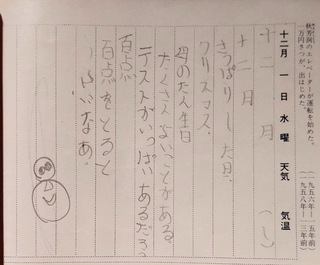 秋芳洞のエレベーターが運転を始めた。(一九五六年―一五年前)
一万円さつが、出はじめた。(一九五八年―一三年前)
十二月 一日 水曜 天気 気温
十二月 (し)
十二月
さっぱりした月。
クリスマス。
母のたん生日
たくさんないことがある。
テストがいっぱいあるだろう
百点
百点をとると
いいなあ。